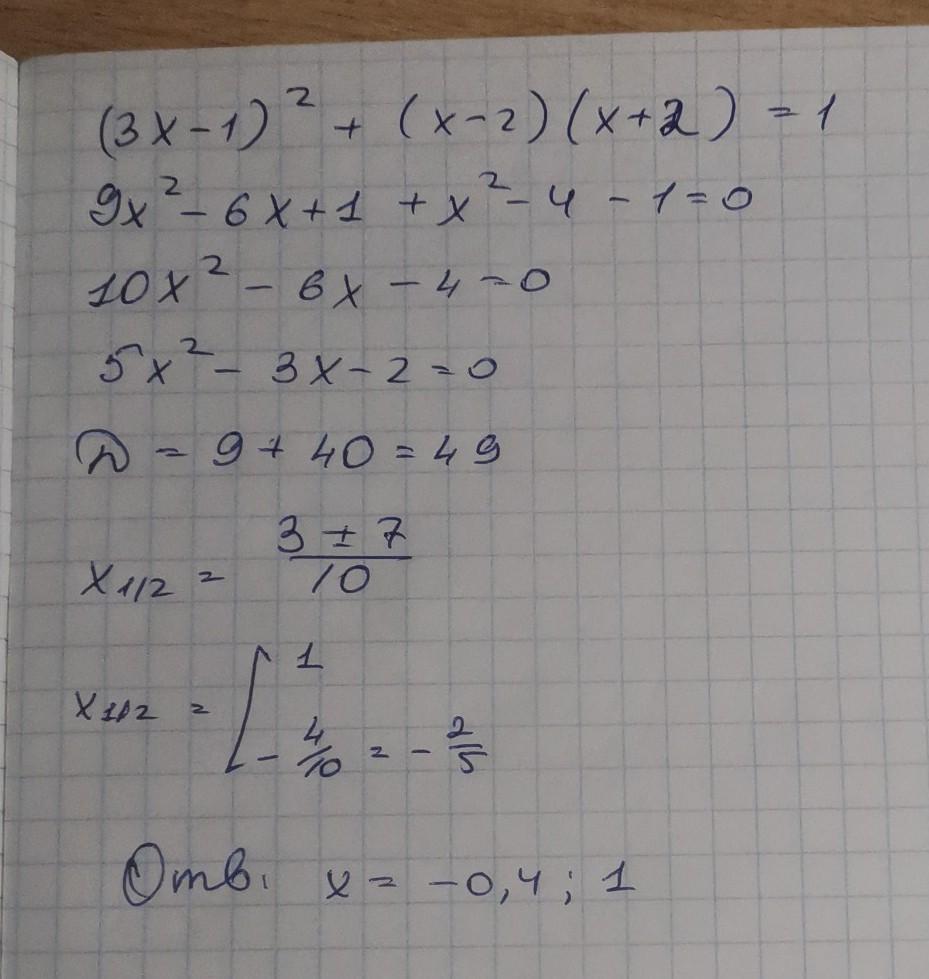 (3x-1)² + (x-2)(x+2) = 1
9x² - 6x + 1 + x² - 4 - 1 = 0
10x² - 6x - 4 = 0
5x² - 3x - 2 = 0
D = 9 + 40 = 49
x1/2 = (3 ± 7)/10
x1,2 = [ 1
- 4/10 = - 2/5
Отв. x = -0,4 ; 1